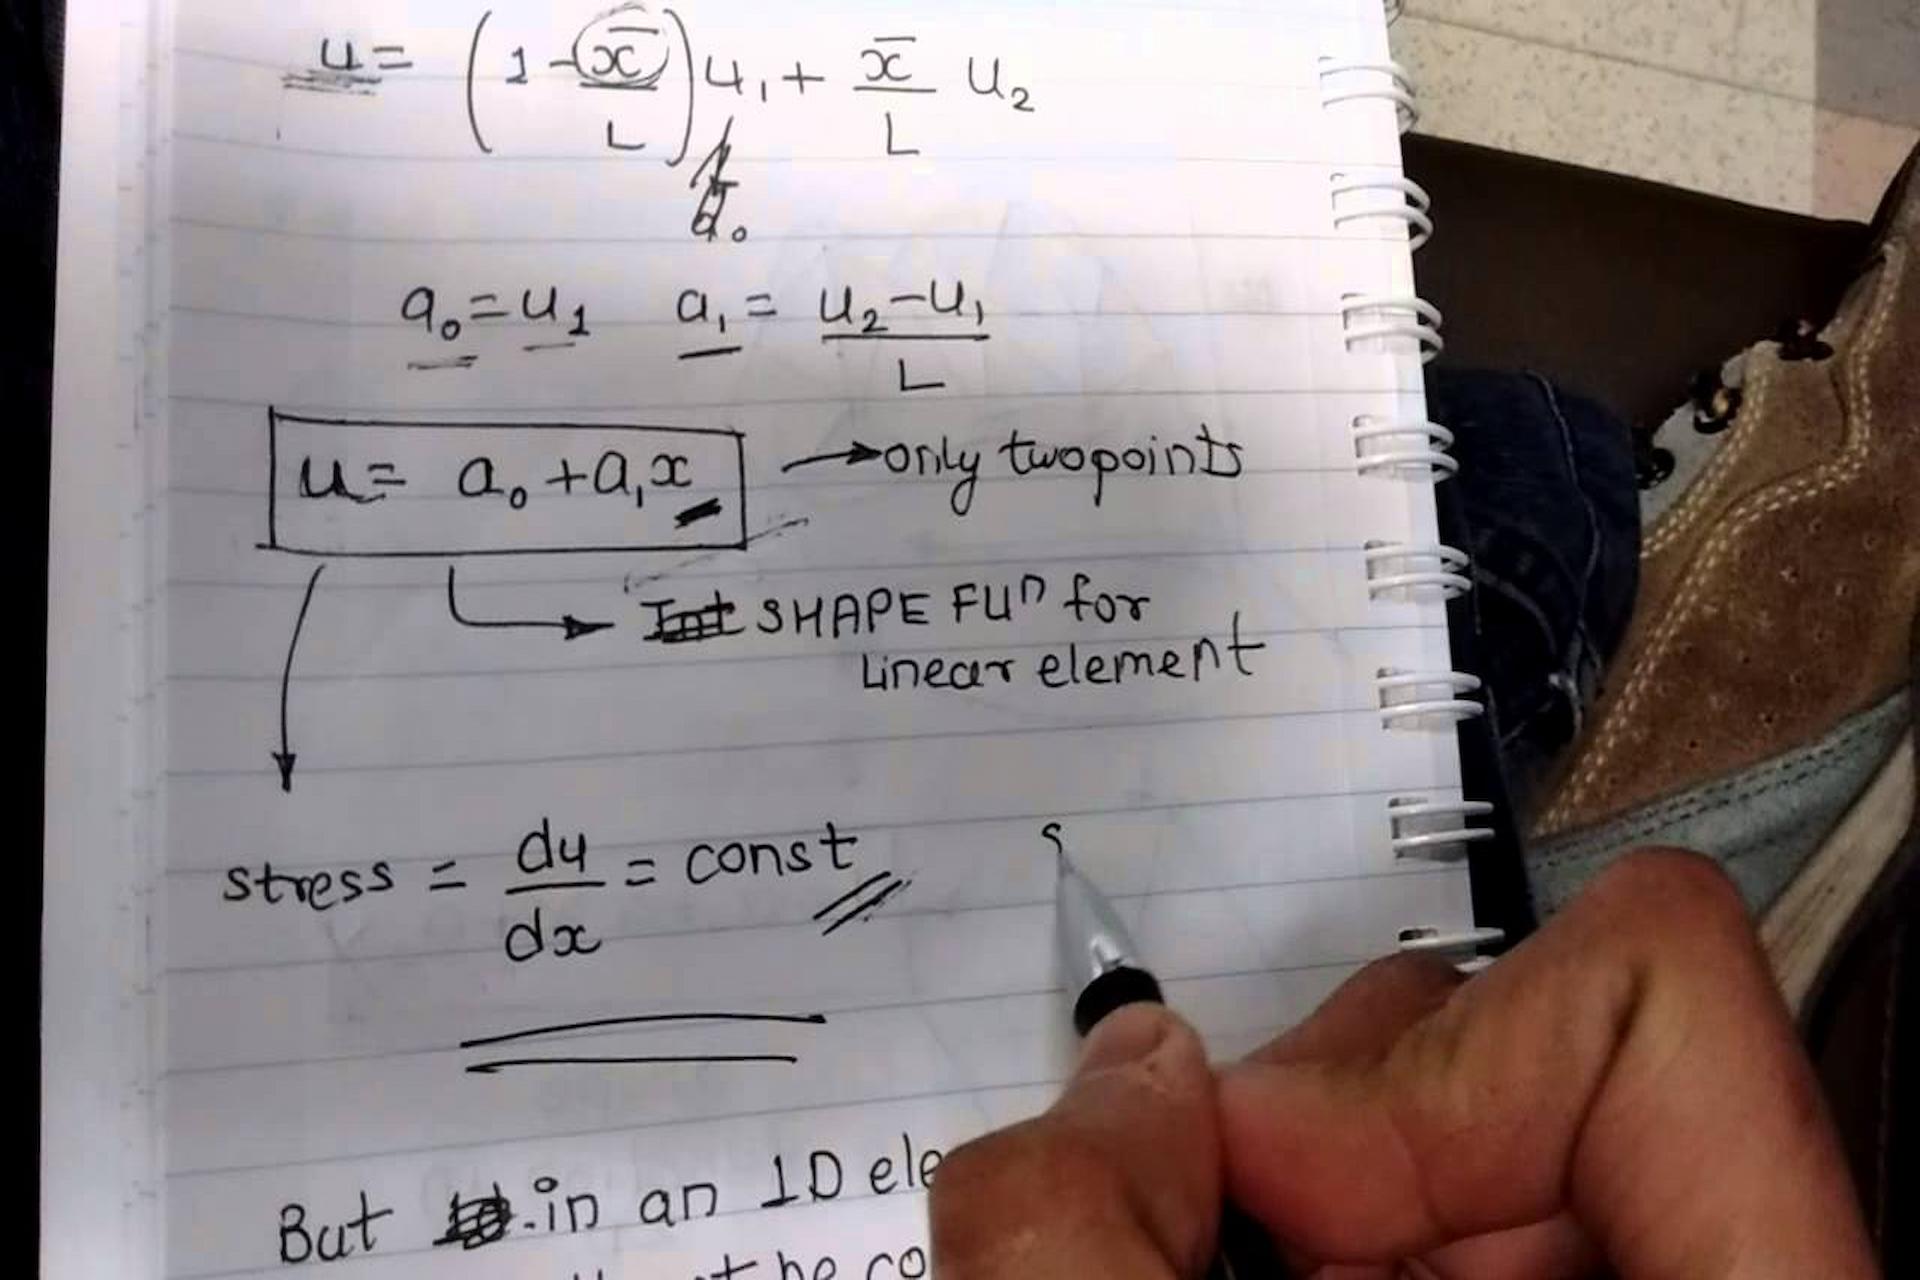 u = (1 - x̄/L) u₁ + x̄/L u₂
a₀
a₀ = u₁ a₁ = (u₂ - u₁)/L
u = a₀ + a₁x → only two points
SHAPE FUⁿ for
Linear element
stress = du/dx = const
S
But in an 1D ele
be co